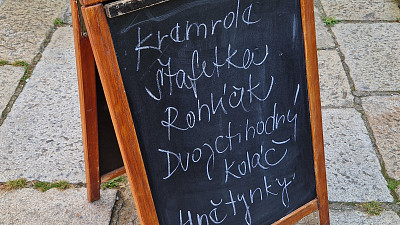 Kremrole
Štafetka
Rohlíček
Dvojctihodný
koláč
Hnětynky